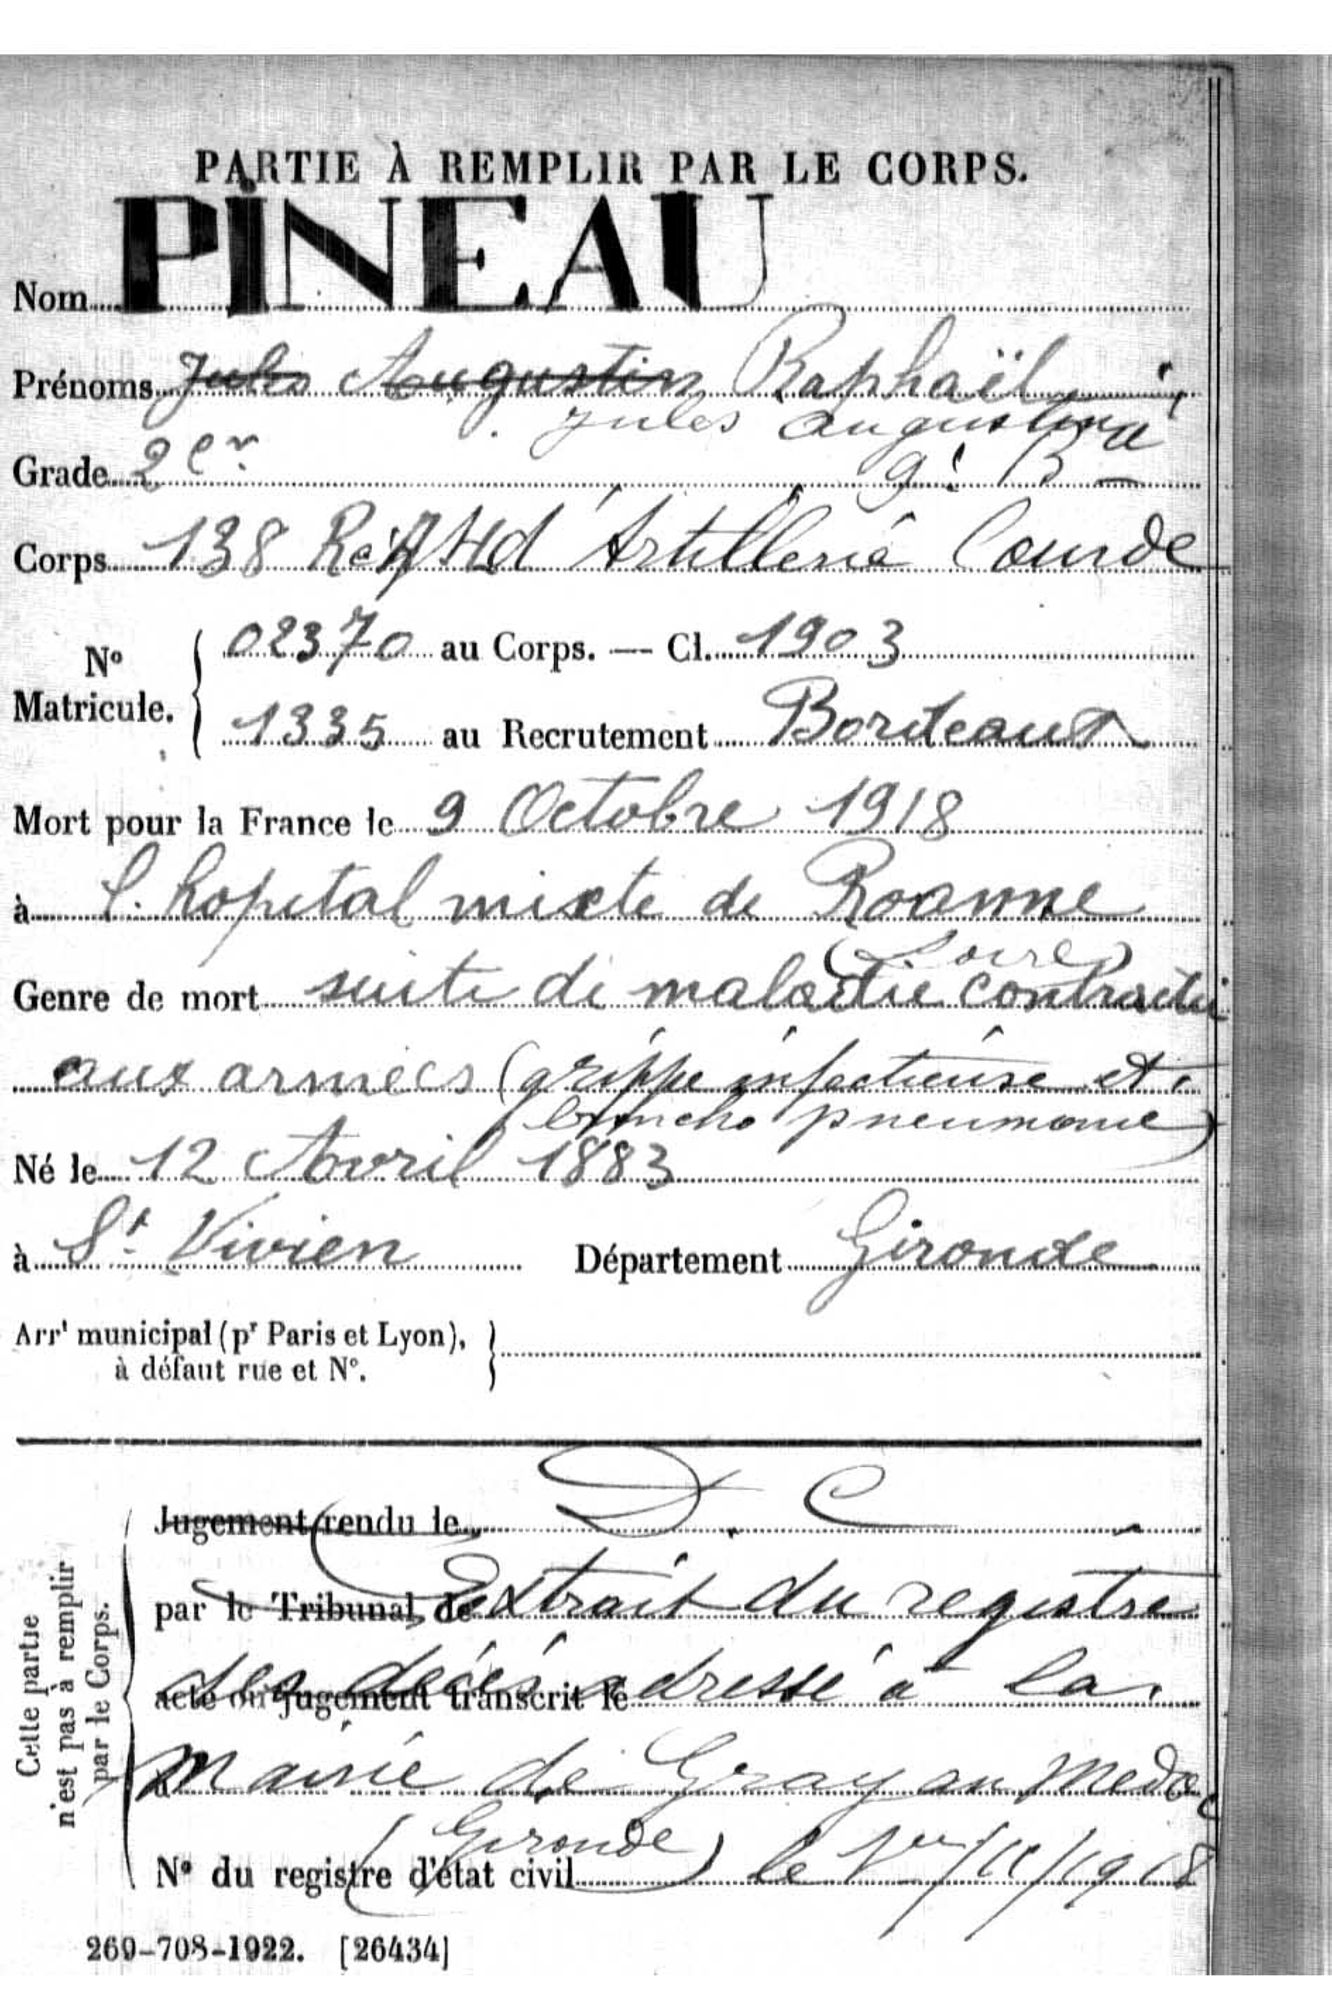 PARTIE À REMPLIR PAR LE CORPS.
Nom PINEAU
Prénoms Jules Augustin Raphaël
Jules Augustin
Grade 2 cr
Corps 138 Régt d'Artillerie Lourde
N° Matricule. 02370 au Corps. — Cl. 1903
1335 au Recrutement Bordeaux
Mort pour la France le 9 Octobre 1918
à l'hopital mixte de Roanne
(Loire)
Genre de mort suite de maladie contractée
aux armées (grippe infectieuse et
broncho pneumonie)
Né le 12 Avril 1883
à St Vivien Département Gironde
Arrt municipal (pr Paris et Lyon),
à défaut rue et N°.
D. C
Jugement rendu le
par le Tribunal de Extrait du registre
des décés adressé à la
acte ou jugement transcrit le
à Mairie de Grayan Medoc
(Gironde) le 1er/11/1918
N° du registre d'état civil
Cette partie
n'est pas à remplir
par le Corps.
269-708-1922. [26434]